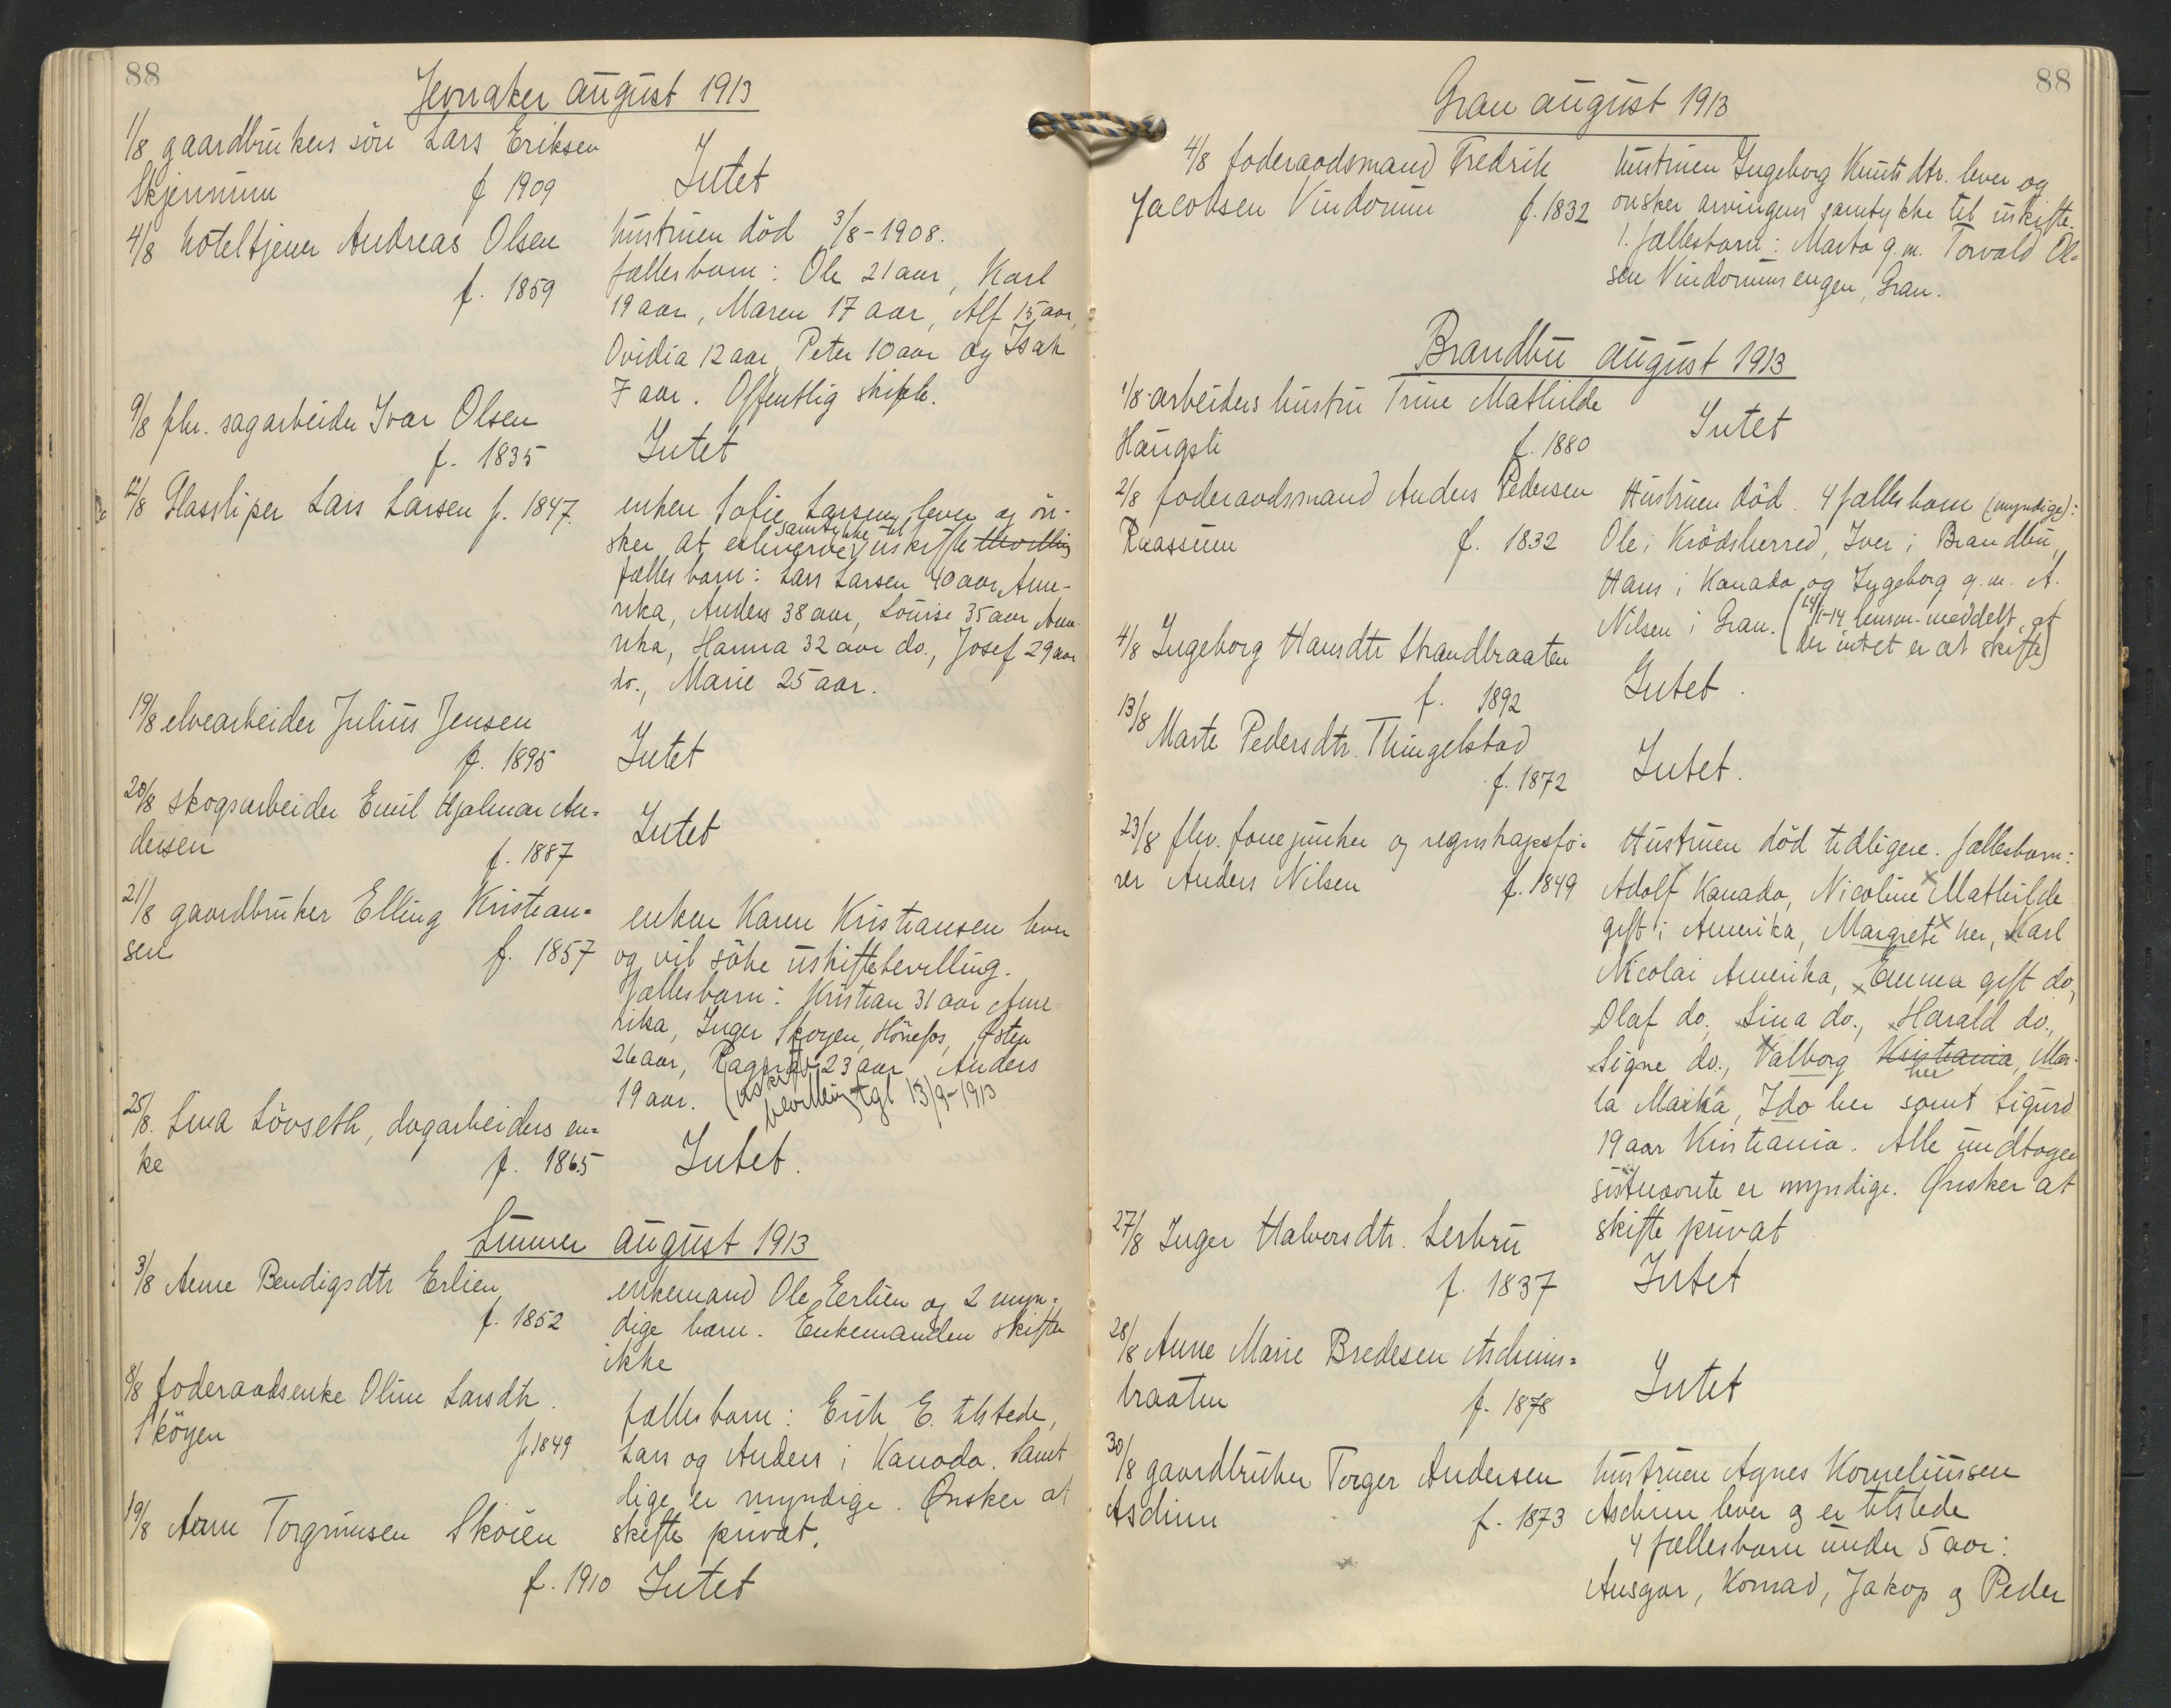 88
Jevnaker august 1913
1/8 gaardbrukers sön Lars Eriksen
Skjerurum f 1909
Intet
4/8 hoteltjener Andreas Olsen
f. 1859
hustruen död 3/8-1908.
fællesbarn: Ole 21 aar, Karl
19 aar, Maren 17 aar, Alf 15 aar,
Ovidia 12 aar, Peter 10 aar og Isak
7 aar. Offentlig skifte.
9/8 fhv. sagarbeider Ivar Olsen
f. 1835
Intet
12/8 Glassliper Lars Larsen f. 1847.
enken Sofie Larsen lever og ön-
sker at erhverve samtykke til uskifte bevilling
fællesbarn: Lars Larsen 40 aar, Ame-
rika, Anders 38 aar, Louise 35 aar Ame-
rika, Hanna 32 aar do., Josef 29 aar
do., Marie 25 aar.
19/8 elvearbeider Julius Jensen
f. 1895
Intet
20/8 skogsarbeider Emil Hjalmar An=
dersen
f. 1887
Intet
21/8 gaardbruker Elling Kristian=
sen
f. 1857
enken Karen Kristiansen lever
og vil söke uskiftebevilling.
Fællesbarn: Kristian 31 aar Ame-
rika, Inger Skoyen, Hönefos, Østen
26 aar, 23 aar, Anders
19 aar. (uskifte
bevilling tgl 13/9-1913
25/8. Lina Lövseth, dagarbeiders en=
ke f. 1865
Intet.
Lunner august 1913
3/8 Anne Bendigsdtr Erlien
f. 1852
enkemand Ole Eerlien og 2 myn-
dige barn. Enkemanden skifter
ikke
8/8 foderaadsenke Oline Larsdtr.
Sköyen f. 1849
fællesbarn: Erik E. tilstede,
Lars og Anders i Kanada. Samt
lige er myndige. Ønsker at
skifte privat.
19/8 Anne Torgrimsen Skoien
f. 1910
Intet
88
Gran august 1913
4/8 foderaadsmand Fredrik
Jacobsen Vindorum f. 1832
hustruen Ingeborg Knutsdtr. lever og
ønsker arvingens samtykke til uskifte.
1. fællesbarn: Marta g.m. Torvald Ol-
sen Vindorumsengen, Gran.
Brandbu august 1913
1/8 arbeiders hustru Trine Mathilde
Haugsli f. 1880
Intet
2/8 foderaadsmand Anders Pedersen
Raassum f. 1832
Hustruen död. 4 fællesbarn (myndige):
Ole i Krödsherred, Iver i Brandbu,
Hans i Kanada og Ingeborg g.m. A.
Nilsen i Gran. (14/1-14 lensm. meddelt, at
der intet er at skifte)
4/8 Ingeborg Hansdtr Strandbraaten
f. 1892
Intet.
13/8
Marte Pedersdtr. Thingelstad
f. 1872
Intet.
23/8 fhv. fanejunker og regnskapsfö-
rer Anders Nilsen f. 1849
Hustruen död tidligere. fællesbarn:
Adolf Kanada, Nicoline Mathilde
gift i Amerika, Margrete her, Karl
Nicolai Amerika, Emma gift do,
Olaf do., Lina do., Harald do.,
Signe do., Valborg Kristiania her, Mar-
ta Marka, Ida her samt Sigurd
19 aar Kristiania. Alle undtagen
sistnævnte er myndige. Ønsker at
skifte privat
27/8 Inger Halvorsdtr. Lerbru
f. 1837
Intet
28/8 Anne Marie Bredesen Aschims=
braaten f. 1878
Intet
30/8 gaardbruker Torger Andersen
Aschim f. 1873
hustruen Agnes Korneliussen
Aschim lever og er tilstede
4 fællesbarn under 5 aar:
Ansgar, Konrad, Jakop og Peder